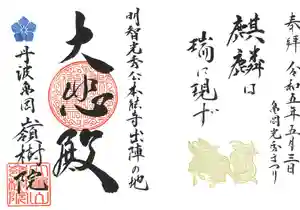 奉拝 令和五年五月三日
亀岡光秀まつり
麒麟は
瑞に現ず
明智光秀公本能寺出陣の地
大悲殿
丹波亀岡 嶺樹院